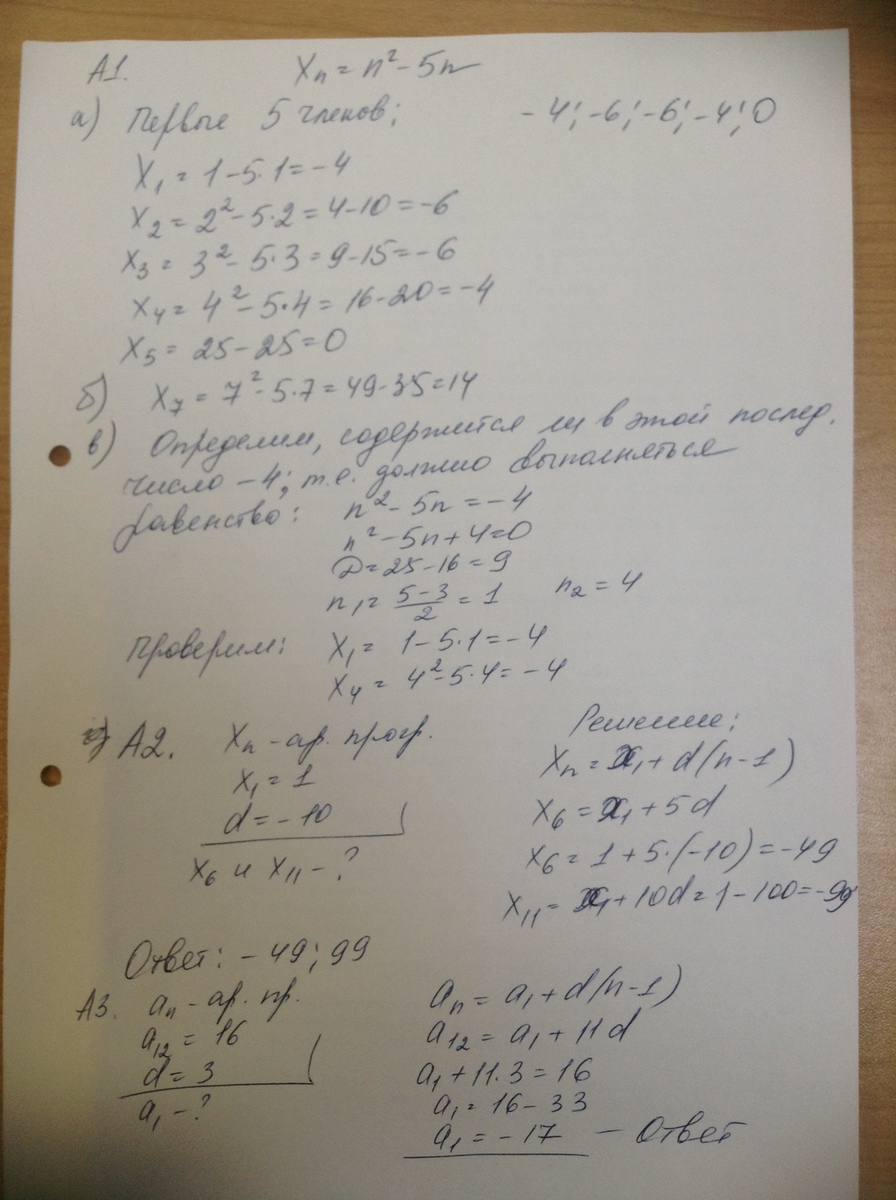 А1. Xₙ = n² - 5n
а) Первые 5 членов; -4; -6; -6; -4; 0
X₁ = 1 - 5·1 = -4
X₂ = 2² - 5·2 = 4 - 10 = -6
X₃ = 3² - 5·3 = 9 - 15 = -6
X₄ = 4² - 5·4 = 16 - 20 = -4
X₅ = 25 - 25 = 0
б) X₇ = 7² - 5·7 = 49 - 35 = 14
в) Определим, содержится ли в этой послед.
число -4; т.е. должно выполняться
равенство: n² - 5n = -4
n² - 5n + 4 = 0
D = 25 - 16 = 9
n₁ = (5 - 3)/2 = 1 n₂ = 4
Проверим: X₁ = 1 - 5·1 = -4
X₄ = 4² - 5·4 = -4
А2. Xₙ - ар. прогр.
X₁ = 1
d = -10
X₆ и X₁₁ - ?
Решение:
Xₙ = x₁ + d(n-1)
X₆ = x₁ + 5d
X₆ = 1 + 5·(-10) = -49
X₁₁ = x₁ + 10d = 1 - 100 = -99
Ответ: -49; 99
А3. aₙ - ар. пр.
a₁₂ = 16
d = 3
a₁ - ?
aₙ = a₁ + d(n-1)
a₁₂ = a₁ + 11d
a₁ + 11·3 = 16
a₁ = 16 - 33
a₁ = -17 - Ответ